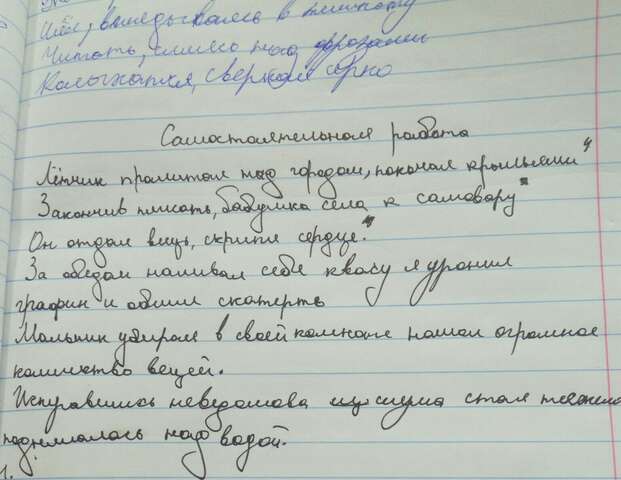 Шёл, вглядываясь в темноту
Читать, смеясь над фразами
Колыхаться, сверкая ярко
Самостоятельная работа
Лётчик пролитал над городом, покачал крыльями"
Закончив писать, бабушка села к самовару"
Он отдал вещь, скрипя сердце."
За обедом наливал себе квасу я уронил
графин и облил скатерть
Мальчик убирая в своей комнате нашол огромное
количество вещей.
Испугавшись неведомова шума стая тяжело
поднималась над водой.